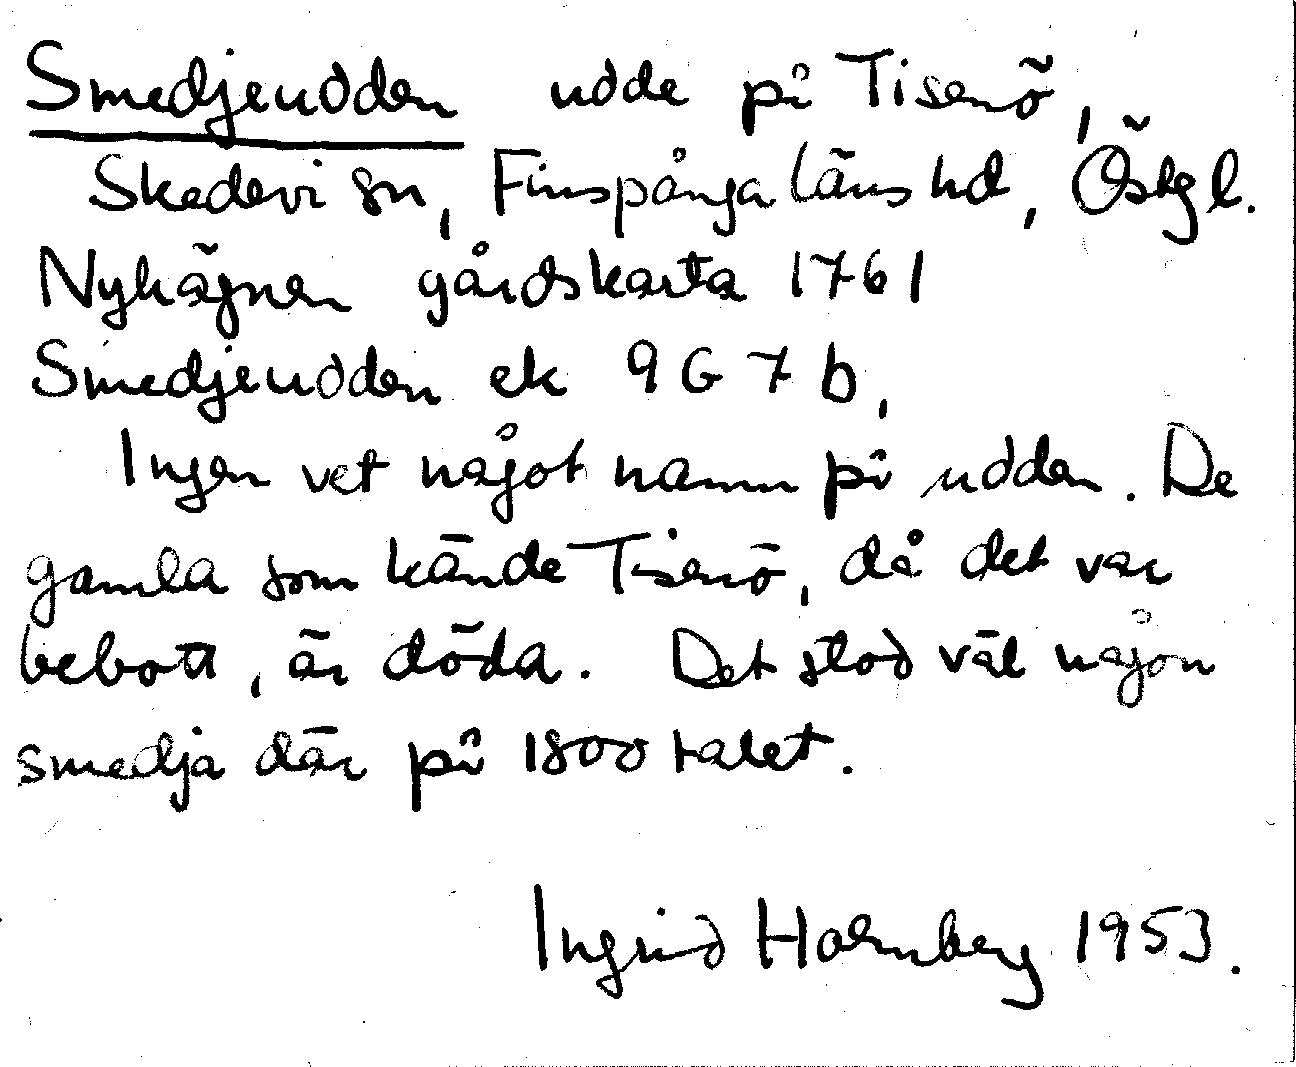 Smedjeudden udde på Tisenö,
Skedevi sn, Finspånga läns hd, Östgl.
Nyhägnen gårdskarta 1761
Smedjeudden ek 9G7b,
Ingen vet något namn på udden. De
gamla som kände Tisenö, då det var
bebott, är döda. Det stod väl någon
smedja där på 1800 talet.
Ingrid Holmberg 1953.